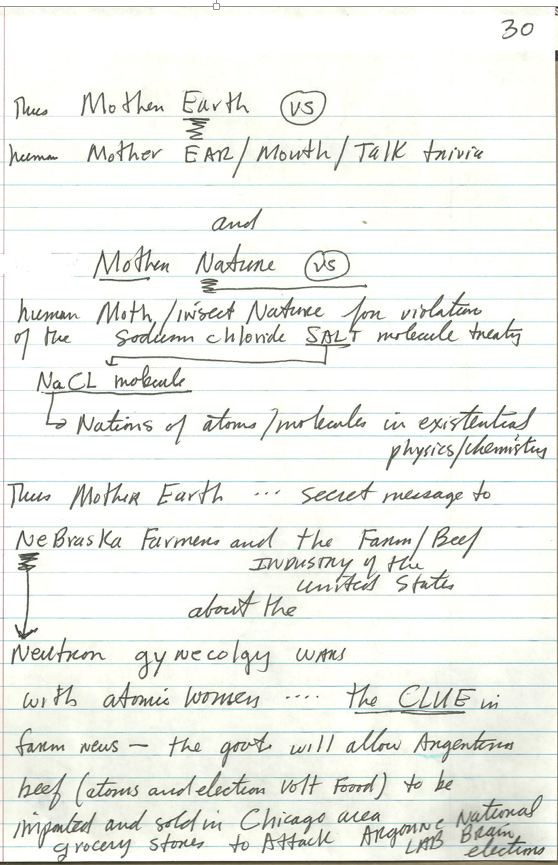 30
Thus Mother Earth (vs)
human Mother EAR/Mouth/Talk trivia
and
Mother Nature (vs)
human Moth,/insect Nature for violation
of the Sodium chloride SALT molecule treaty
NaCL molecule
Nations of atoms/molecules in existential
physics/chemistry
Thus Mother Earth ... secret message to
NeBraska Farmers and the Farm/Beef
INDUSTRY of the
United States
about the
Neutron gynecolgy WARS
with atomic women .... the CLUE in
farm news — the govt will allow Argentina
beef (atoms and election volt Foood) to be
imported and sold in Chicago area
grocery stores to Attack Argonne National
LAB Brain
elections